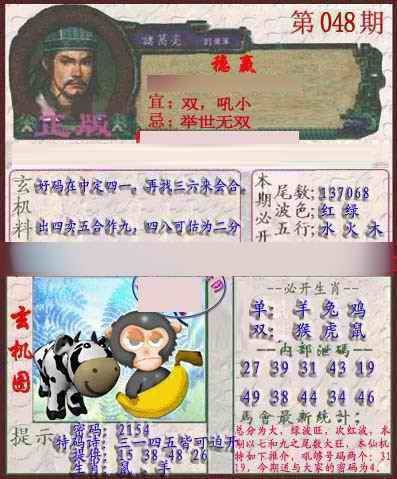 第048期
諸葛亮
稳赢
宜：双，吼小
忌：举世无双
正版
玄机料
好码在中定四一，再找三六来会合。
出四卖五合作九，四八可估为二分
本期必开
尾数:137068
波色:红 绿
五行:水 火 木
玄机图
--必开生肖--
单: 羊 兔 鸡
双: 猴 虎 鼠
--内部泄码--
27 39 31 43 19
49 38 44 34 46
馬會最新統计:
总分为大，绿波旺，次红波，本期以七和九之尾数大旺，本仙机特如下推介，吼够号码两个: 31 19，今期送与大家的密码为4.
提示
密码: 2154
特码诗: 三一四五皆可迫开
提供: 15 38 48 26
生肖: 鼠、羊